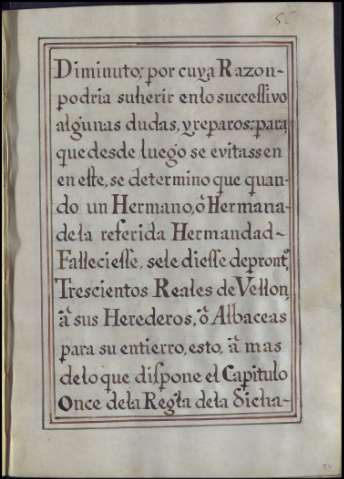 55
Diminuto; por cuya Razon-
podria suherir enlo successivo
algunas dudas, y reparos; para
que desde luego se evitassen
en este, se determino que quan-
do un Hermano, ô Hermana
dela referida Hermandad-
Falleciesse, sele diesse depront.º
Trescientos Reales de Vellon,
â sus Herederos, ô Albaceas
para su entierro, esto, â mas
delo que dispone el Capitulo
Once dela Regla dela dicha-